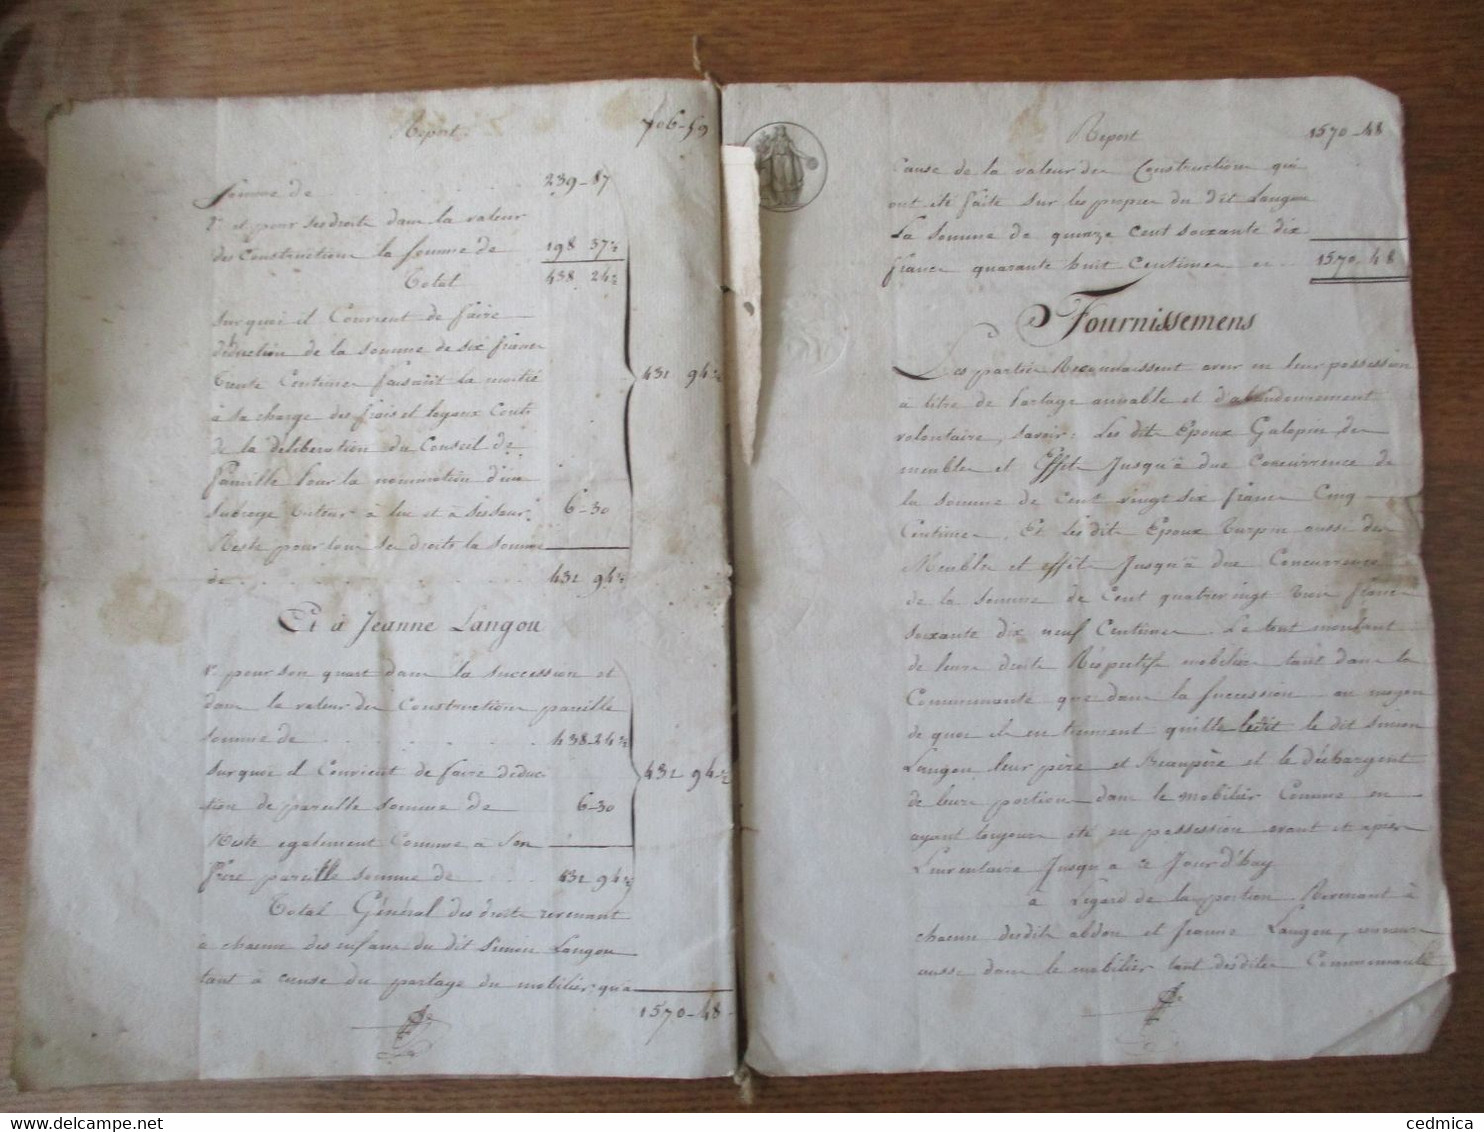 Report 706-59
Somme de 239-87
2° et pour ses droits dans la valeur
des Constructions la somme de 198 37½
Total 438 24½
surquoi il Convient de faire
déduction de la somme de six francs
trente Centimes faisant la moitié
à sa charge des frais et legaux Couts
de la déliberation du Conseil de
famille pour la nomination d'un
subrogé tuteur à lui et à sa sœur 6-30
Reste pour tous ses droits la somme
de 431 94½
431 94½
Et à Jeanne Langou
1° pour son quart dans la succession et
dans la valeur des Constructions pareille
somme de 438-24½
surquoi il Convient de faire déduc
tion de pareille somme de 6-30
Reste egalement Comme à son
frère pareille somme de 431 94½
431 94½
Total Général des droits revenant
à chacun des enfans du dit Simon Langou
tant à cause du partage du mobilier qu'a
1570-48
Report 1570-48
Cause de la valeur des Constructions qui
ont eté faite sur les propres du dit Langou
La somme de quinze Cent soixante dix
francs quarante huit Centimes 1570,48
Fournissemens
Les parties Reconnaissent avoir en leur possession
à titre de Partage amiable et d'abandonnement
volontaire, savoir: Les dits Epoux Galopin, des
meubles et Effets Jusqu'à due Concurrence de
la somme de Cent vingt six francs Cinq
Centimes, Et les dits Epoux Turpin aussi des
Meubles et effets Jusqu'à due Concurrence
de la somme de Cent quatrevingt trois francs
soixante dix neuf Centimes. Le tout montant
de leurs droits Respectifs mobiliers tant dans la
Communauté que dans la succession au moyen
de quoi ils en tiennent quitte ledit le dit Simon
Langou, leur père et Beaupère et le déchargent
de leurs portions dans le mobilier Comme en
ayant toujours eté en possession avant et après
L'inventaire Jusqu'a ce Jourd'huy
à L'égard de la portion Revenant à
chacun desdits abdon et Jeanne Langou,
aussi dans le mobilier tant desdites Communauté